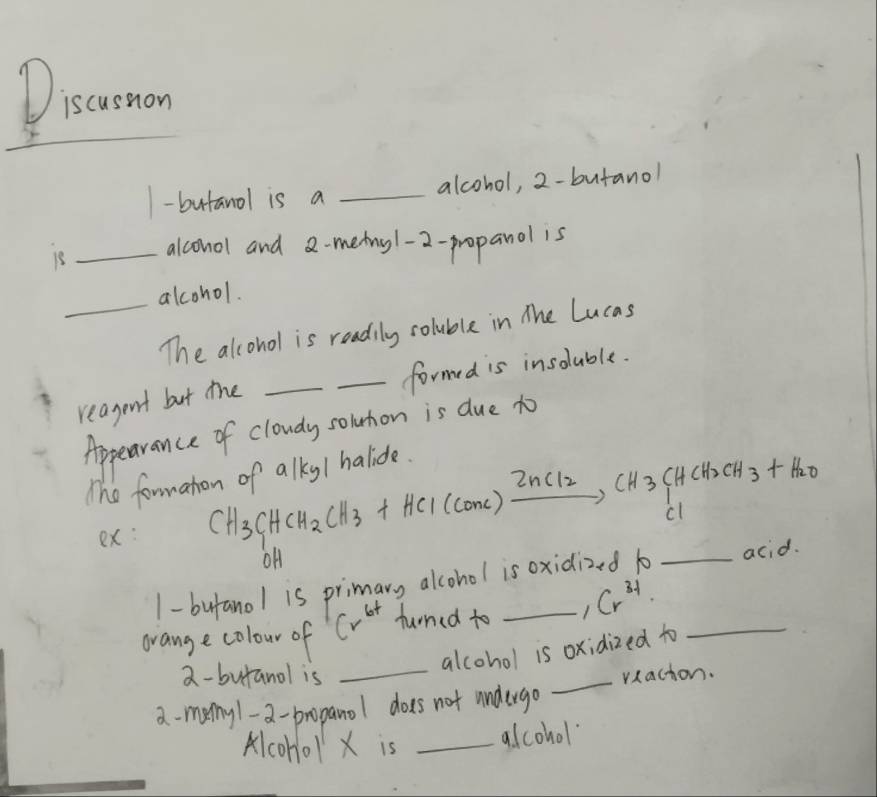 Discussion
1-butanol is a ____ alcohol, 2-butanol
is ____ alcohol and 2-methyl-2-propanol is
____ alcohol.
The alcohol is readily soluble in the Lucas
reagent but the ____ ____ formed is insoluble.
Appearance of cloudy solution is due to
the formation of alkyl halide.
ex: CH3CHCH2CH3 + HCl (conc) ZnCl2 → CH3CHCH2CH3 + H2O
OH Cl
1-butanol is primary alcohol is oxidized to ____ acid.
orange colour of Cr6+ turned to ____, Cr3+.
2-butanol is ____ alcohol is oxidized to ____
2-methyl-2-propanol does not undergo ____ reaction.
Alcohol X is ____ alcohol.